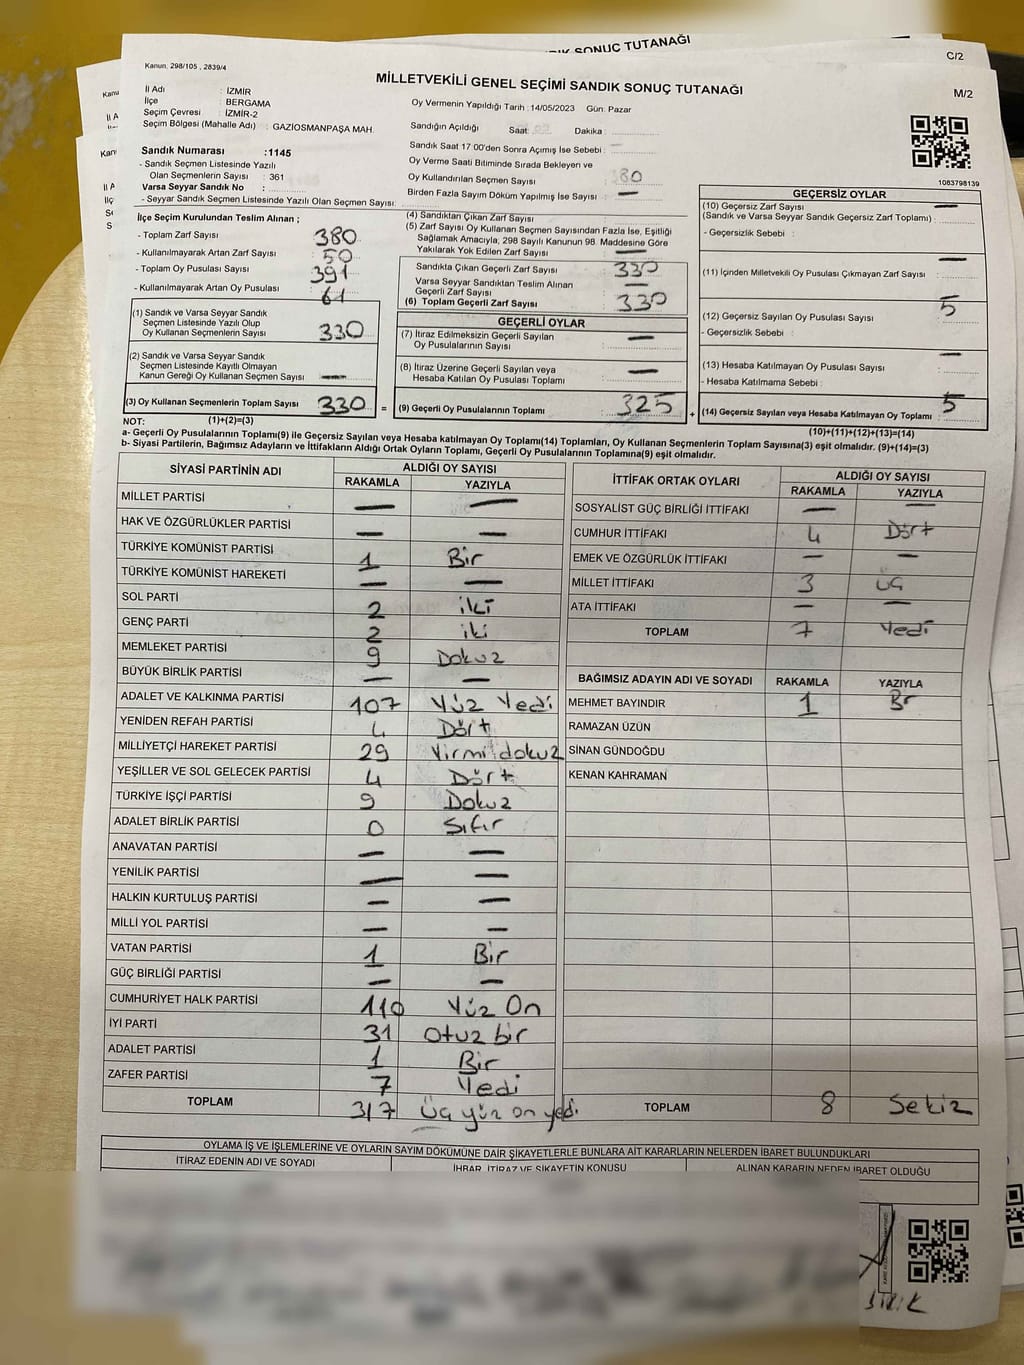 SONUÇ TUTANAĞI
C/2
Kanun. 298/105 , 2839/4
MİLLETVEKİLİ GENEL SEÇİMİ SANDIK SONUÇ TUTANAĞI
M/2
İl Adı : İZMİR
İlçe : BERGAMA
Seçim Çevresi : İZMİR-2
Seçim Bölgesi (Mahalle Adı) : GAZİOSMANPAŞA MAH.
Oy Vermenin Yapıldığı Tarih : 14/05/2023 Gün: Pazar
Sandığın Açıldığı Saat: Dakika :
Sandık Saat 17:00'den Sonra Açılmış İse Sebebi : —
Oy Verme Saati Bitiminde Sırada Bekleyen ve
Oy Kullandırılan Seçmen Sayısı : 380
Birden Fazla Sayım Döküm Yapılmış İse Sayısı : —
1083798139
Sandık Numarası :1145
- Sandık Seçmen Listesinde Yazılı
Olan Seçmenlerin Sayısı : 361
Varsa Seyyar Sandık No :
- Seyyar Sandık Seçmen Listesinde Yazılı Olan Seçmen Sayısı:
İlçe Seçim Kurulundan Teslim Alınan ;
- Toplam Zarf Sayısı 380
- Kullanılmayarak Artan Zarf Sayısı 50
- Toplam Oy Pusulası Sayısı 391
- Kullanılmayarak Artan Oy Pusulası 61
(1) Sandık ve Varsa Seyyar Sandık
Seçmen Listesinde Yazılı Olup
Oy Kullanan Seçmenlerin Sayısı : 330
(2) Sandık ve Varsa Seyyar Sandık
Seçmen Listesinde Kayıtlı Olmayan
Kanun Gereği Oy Kullanan Seçmen Sayısı : —
(3) Oy Kullanan Seçmenlerin Toplam Sayısı 330 =
(1)+(2)=(3)
(4) Sandıktan Çıkan Zarf Sayısı :
(5) Zarf Sayısı Oy Kullanan Seçmen Sayısından Fazla İse, Eşitliği
Sağlamak Amacıyla; 298 Sayılı Kanunun 98. Maddesine Göre
Yakılarak Yok Edilen Zarf Sayısı : —
Sandıkta Çıkan Geçerli Zarf Sayısı : 330
Varsa Seyyar Sandıktan Teslim Alınan
Geçerli Zarf Sayısı : —
(6) Toplam Geçerli Zarf Sayısı : 330
GEÇERLİ OYLAR
(7) İtiraz Edilmeksizin Geçerli Sayılan
Oy Pusulalarının Sayısı : —
(8) İtiraz Üzerine Geçerli Sayılan veya
Hesaba Katılan Oy Pusulası Toplamı : —
(9) Geçerli Oy Pusulalarının Toplamı : 325 +
GEÇERSİZ OYLAR
(10) Geçersiz Zarf Sayısı
(Sandık ve Varsa Seyyar Sandık Geçersiz Zarf Toplamı) : —
- Geçersizlik Sebebi :
(11) İçinden Milletvekili Oy Pusulası Çıkmayan Zarf Sayısı : —
(12) Geçersiz Sayılan Oy Pusulası Sayısı : 5
- Geçersizlik Sebebi :
(13) Hesaba Katılmayan Oy Pusulası Sayısı : —
- Hesaba Katılmama Sebebi :
(14) Geçersiz Sayılan veya Hesaba Katılmayan Oy Toplamı : 5
(10)+(11)+(12)+(13)=(14)
NOT:
a- Geçerli Oy Pusulalarının Toplamı(9) ile Geçersiz Sayılan veya Hesaba katılmayan Oy Toplamı(14) Toplamları, Oy Kullanan Seçmenlerin Toplam Sayısına(3) eşit olmalıdır. (9)+(14)=(3)
b- Siyasi Partilerin, Bağımsız Adayların ve İttifakların Aldığı Ortak Oyların Toplamı, Geçerli Oy Pusulalarının Toplamına(9) eşit olmalıdır.
SİYASİ PARTİNİN ADI
ALDIĞI OY SAYISI
RAKAMLA YAZIYLA
MİLLET PARTİSİ — —
HAK VE ÖZGÜRLÜKLER PARTİSİ — —
TÜRKİYE KOMÜNİST PARTİSİ 1 Bir
TÜRKİYE KOMÜNİST HAREKETİ — —
SOL PARTİ 2 iki
GENÇ PARTİ 2 iki
MEMLEKET PARTİSİ 9 Dokuz
BÜYÜK BİRLİK PARTİSİ — —
ADALET VE KALKINMA PARTİSİ 107 Yüz Yedi
YENİDEN REFAH PARTİSİ 4 Dört
MİLLİYETÇİ HAREKET PARTİSİ 29 Yirmi dokuz
YEŞİLLER VE SOL GELECEK PARTİSİ 4 Dört
TÜRKİYE İŞÇİ PARTİSİ 9 Dokuz
ADALET BİRLİK PARTİSİ 0 Sıfır
ANAVATAN PARTİSİ — —
YENİLİK PARTİSİ — —
HALKIN KURTULUŞ PARTİSİ — —
MİLLİ YOL PARTİSİ — —
VATAN PARTİSİ 1 Bir
GÜÇ BİRLİĞİ PARTİSİ — —
CUMHURİYET HALK PARTİSİ 110 Yüz On
İYİ PARTİ 31 Otuz bir
ADALET PARTİSİ 1 Bir
ZAFER PARTİSİ 7 Yedi
TOPLAM 317 Üç yüz on yedi
İTTİFAK ORTAK OYLARI
ALDIĞI OY SAYISI
RAKAMLA YAZIYLA
SOSYALİST GÜÇ BİRLİĞİ İTTİFAKI — —
CUMHUR İTTİFAKI 4 Dört
EMEK VE ÖZGÜRLÜK İTTİFAKI — —
MİLLET İTTİFAKI 3 üç
ATA İTTİFAKI — —
TOPLAM 7 Yedi
BAĞIMSIZ ADAYIN ADI VE SOYADI RAKAMLA YAZIYLA
MEHMET BAYINDIR 1 Br
RAMAZAN ÜZÜN
SİNAN GÜNDOĞDU
KENAN KAHRAMAN
TOPLAM 8 Sekiz
OYLAMA İŞ VE İŞLEMLERİNE VE OYLARIN SAYIM DÖKÜMÜNE DAİR ŞİKAYETLERLE BUNLARA AİT KARARLARIN NELERDEN İBARET BULUNDUKLARI
İTİRAZ EDENİN ADI VE SOYADI
İHBAR, İTİRAZ VE ŞİKAYETİN KONUSU
ALINAN KARARIN NEDEN İBARET OLDUĞU